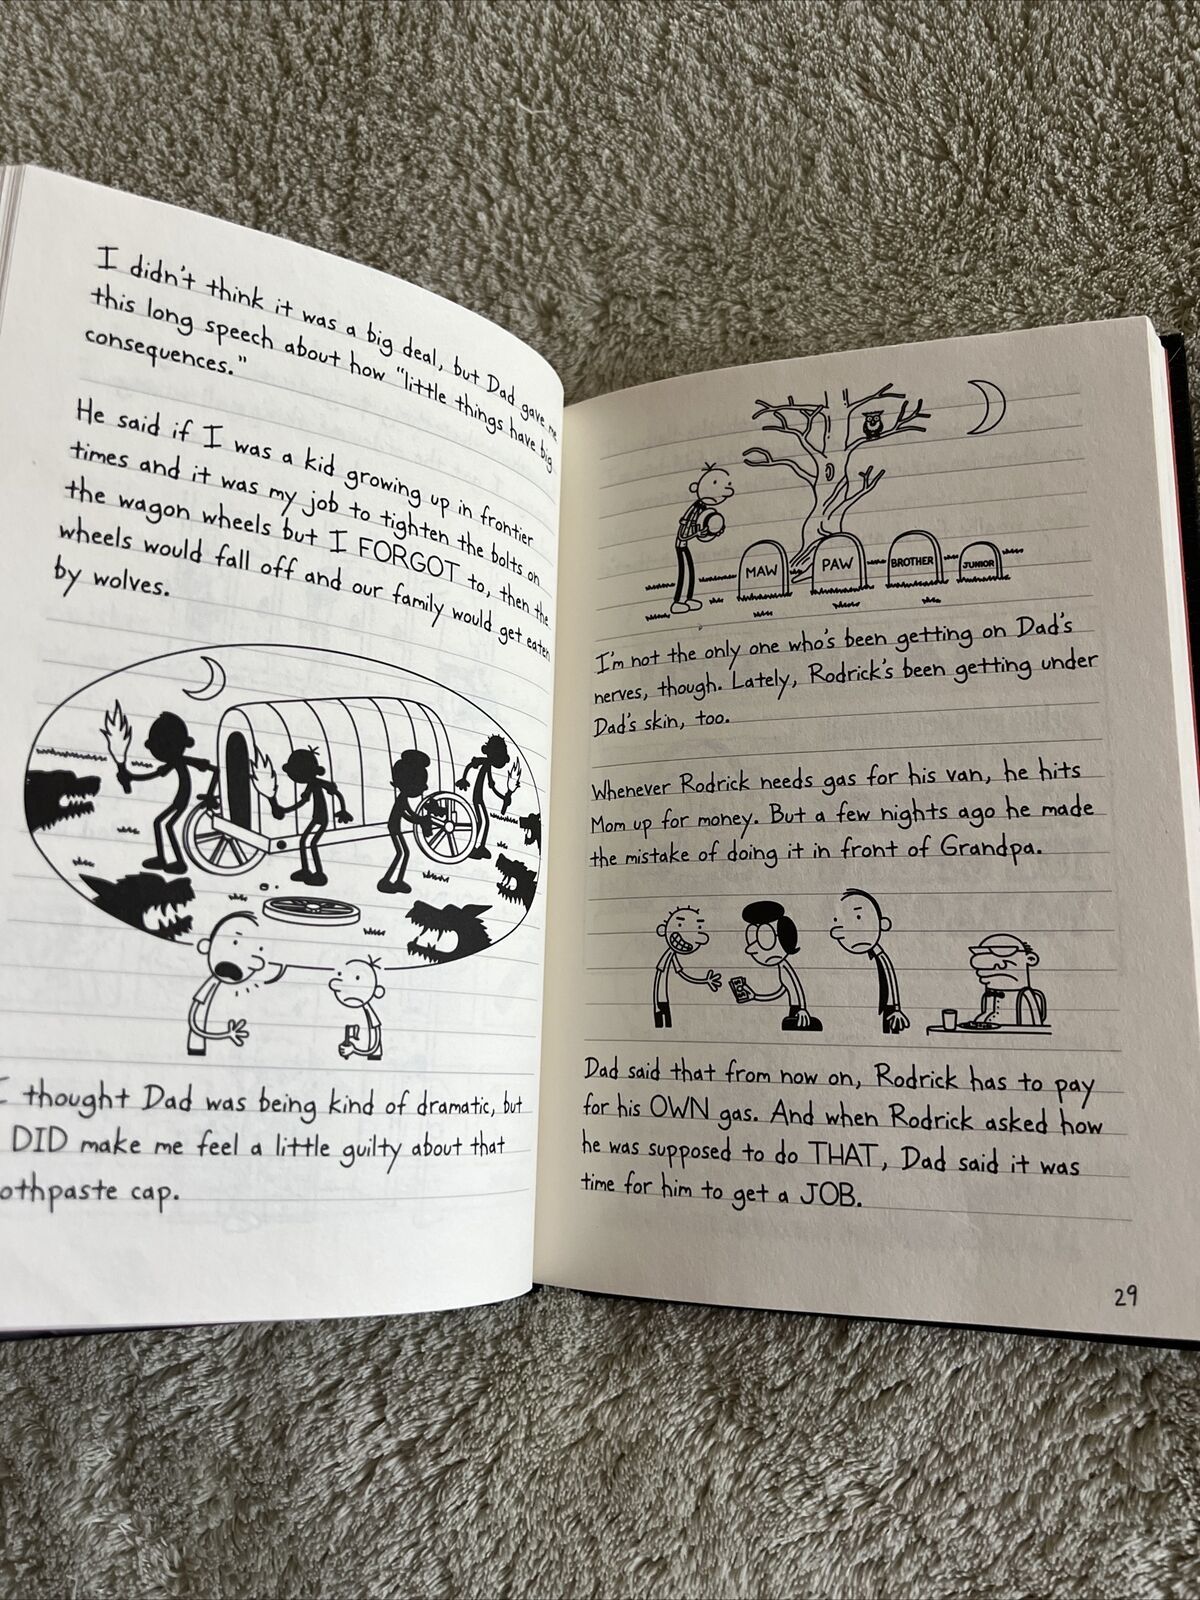 I didn't think it was a big deal, but Dad gave me
this long speech about how "little things have big
consequences."
He said if I was a kid growing up in frontier
times and it was my job to tighten the bolts on
the wagon wheels but I FORGOT to, then the
wheels would fall off and our family would get eaten
by wolves.
I thought Dad was being kind of dramatic, but
DID make me feel a little guilty about that
othpaste cap.
MAW
PAW
BROTHER
JUNIOR
I'm not the only one who's been getting on Dad's
nerves, though. Lately, Rodrick's been getting under
Dad's skin, too.
Whenever Rodrick needs gas for his van, he hits
Mom up for money. But a few nights ago he made
the mistake of doing it in front of Grandpa.
Dad said that from now on, Rodrick has to pay
for his OWN gas. And when Rodrick asked how
he was supposed to do THAT, Dad said it was
time for him to get a JOB.
29